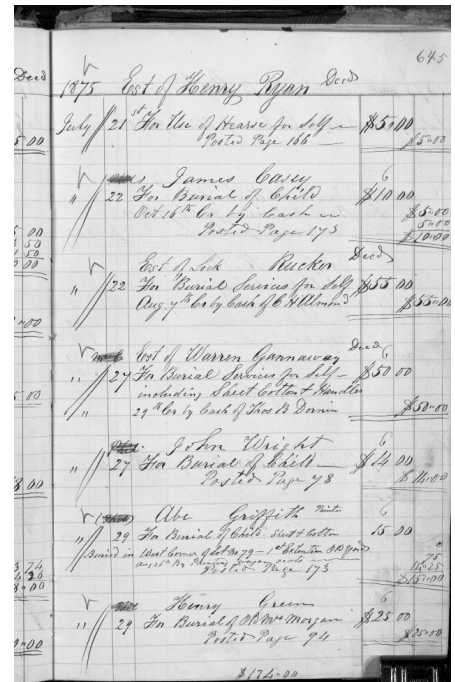 645
Deed
1875 Est of Henry Ryan Deed
July 21st For Use of Hearse for Self $5.00
5.00 Posted Page 166 $5.00
James Casey 6
" 22 For Burial of Child $10.00
Oct 16th Cr by Cash $5.00
5.00
Posted Page 173 $10.00
Est of Lock Rucker Deed
" 22 For Burial Services for Self $55.00
Aug 7th Cr by Cash of C H Almond $55.00
Est of Warren Gannaway Deed
6
" 27 For Burial Services for Self $50.00
" including Sheet Cotton & Handles
29th Cr by Cash of Thos B Dornin $50.00
John Wright 6
" 27 For Burial of Child $14.00
Posted Page 78 $14.00
Abe Griffith Painter 6
" 29 For Burial of Child Sheet & Cotton 15.00
Buried in West Corner of Lot No 79 1st Extention Old Yard
75
Aug 26th By Painting Wagon 14.25
Posted Page 173 $15.00
Henry Green 6
" 29 For Burial of Old Mrs Morgan $25.00
Posted Page 94 $25.00
$174.00